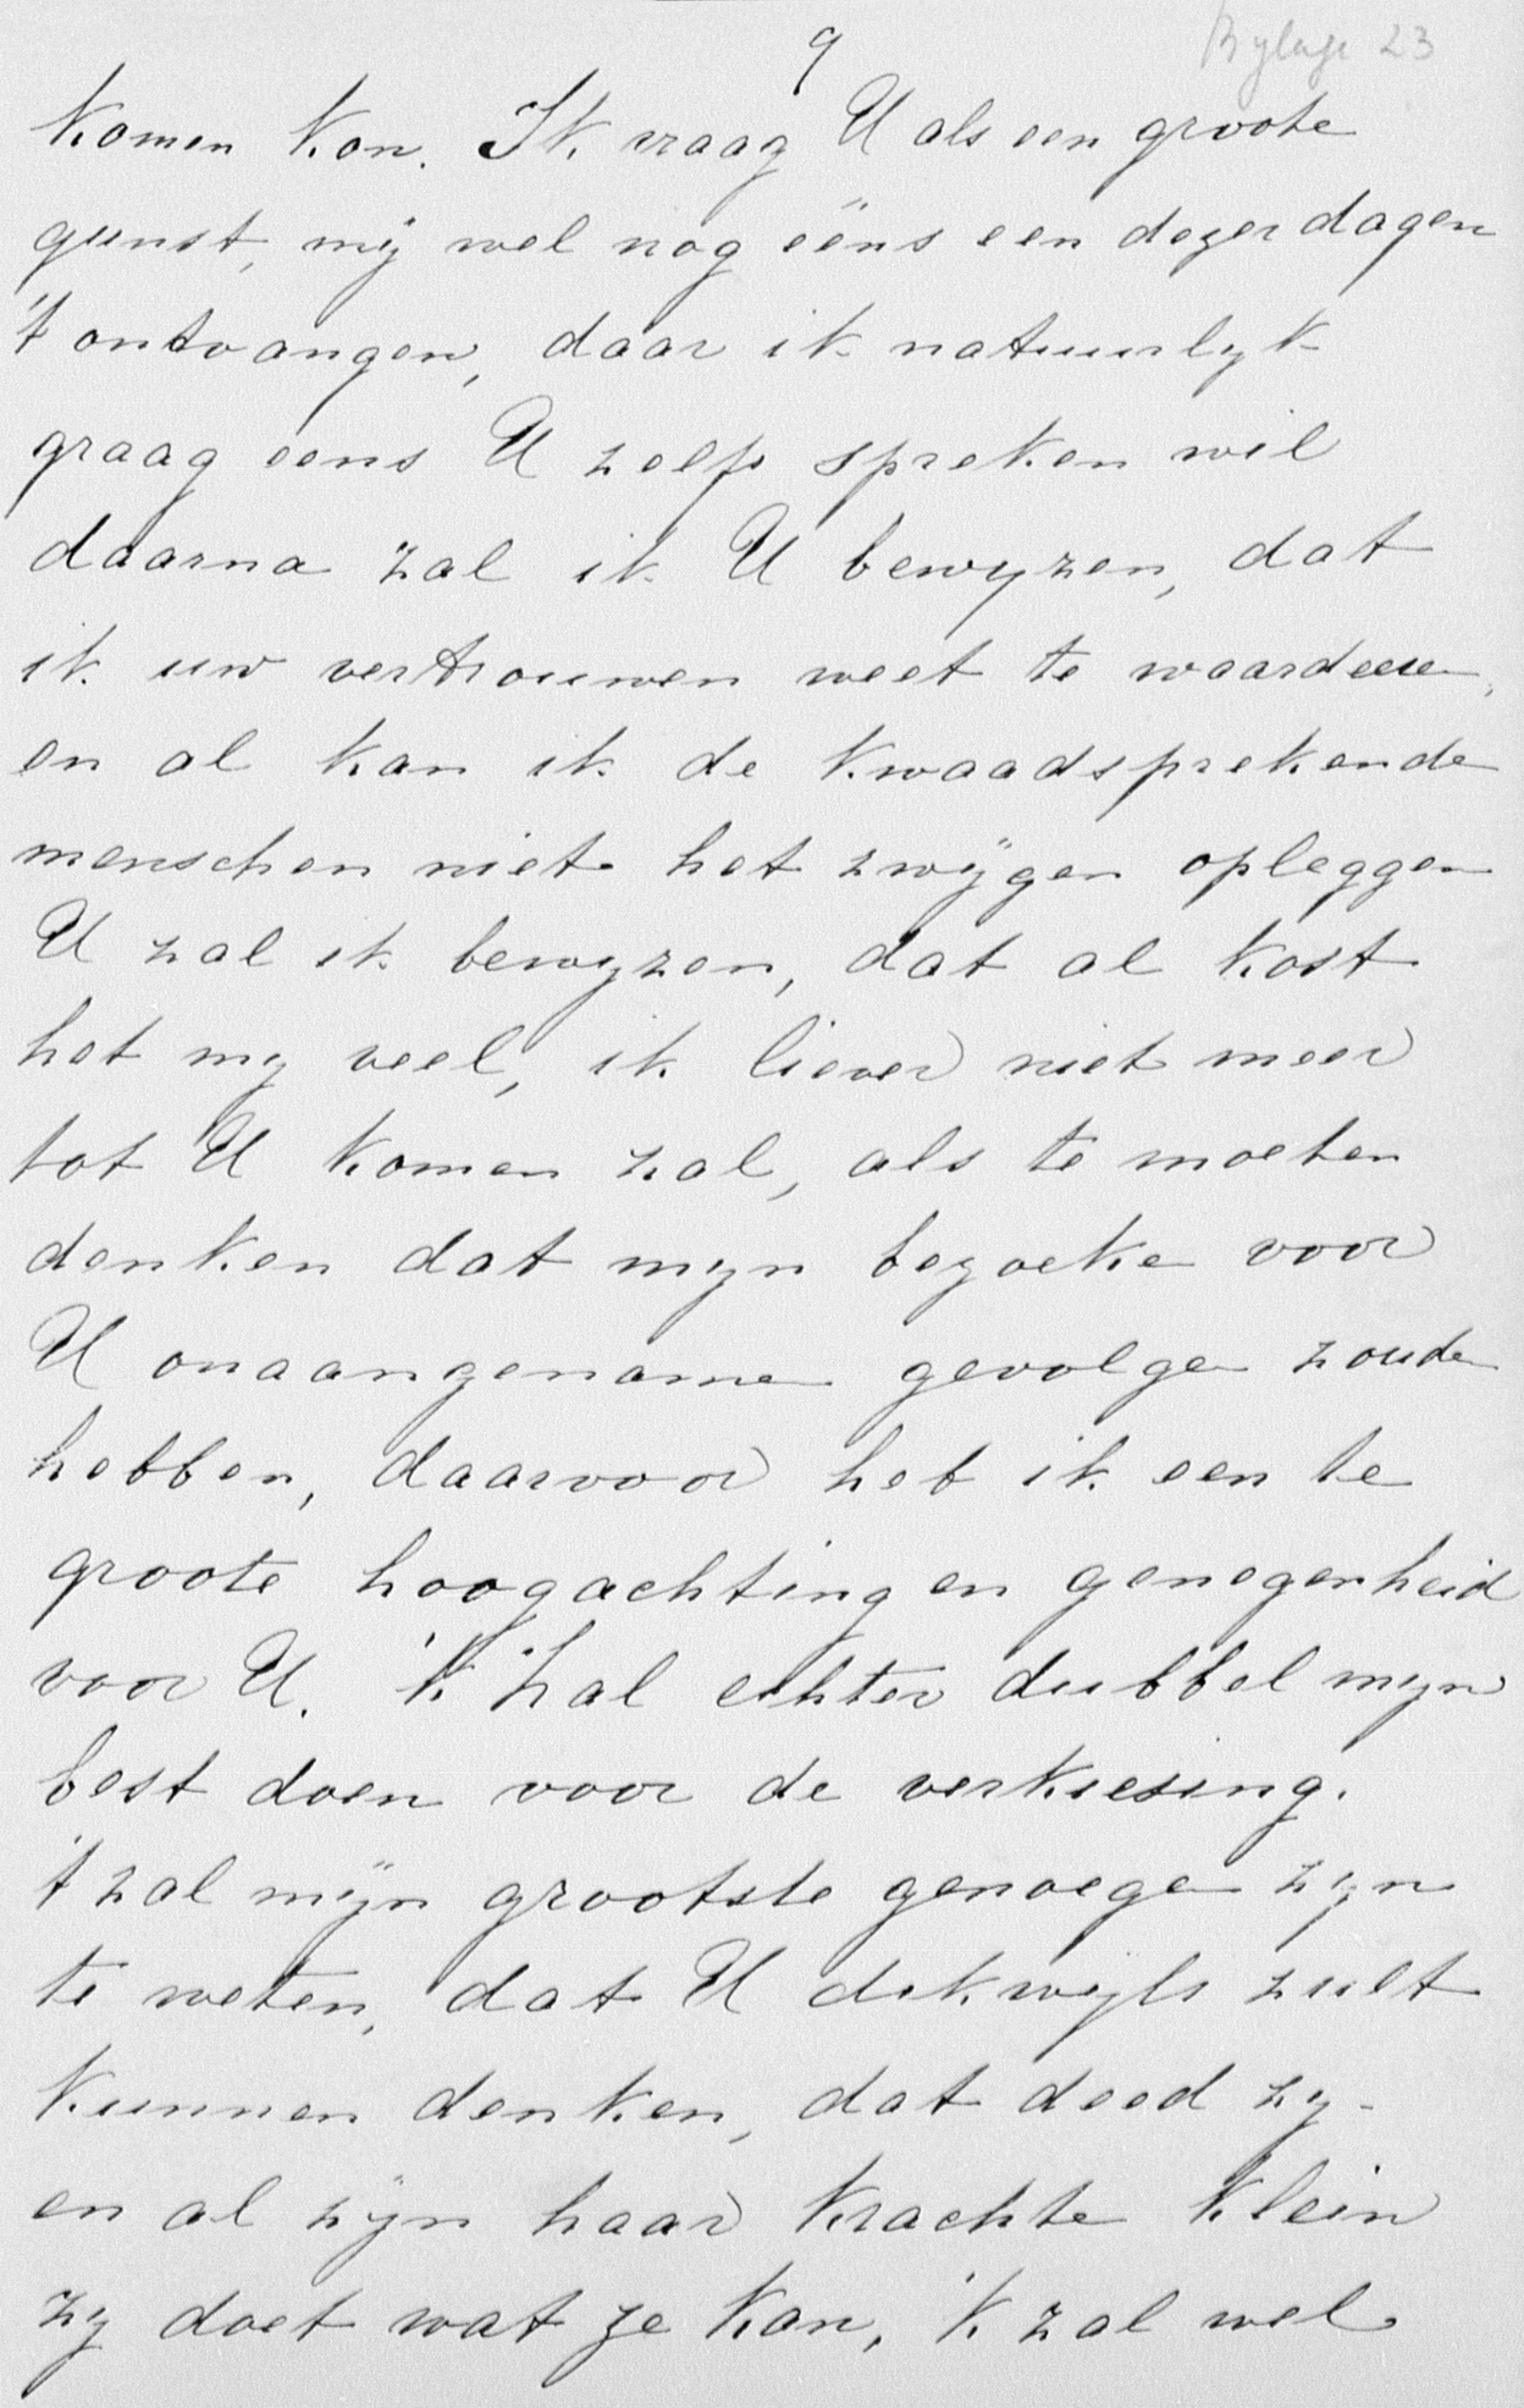 9
Bylage 23
Komen Kon. Ik vraag U als een groote
gunst, mij wel nog ééns een dezer dagen
't ontvangen, daar ik natuurlyk
graag eens U zelf spreken wil
daarna zal ik U bewyzen, dat
ik uw vertrouwen weet te waardeeren,
en al kan ik de kwaadsprekende
menschen niet het zwijgen opleggen
U zal ik bewyzen, dat al kost
het my veel, ik liever niet meer
tot U komen zal, als te moeten
denken dat myn bezoeke voor
U onaangename gevolge zoude
hebben, daarvoor heb ik een te
groote hoogachting en genegenheid
voor U. 'k Zal echter dubbel myn
best doen voor de verkiesing.
't zal mijn grootste genoege zyn
te weten, dat U dikwyls zult
kunnen denken, dat deed zy -
en al zijn haar krachte klein
zy doet wat ze kan, 'k zal wel